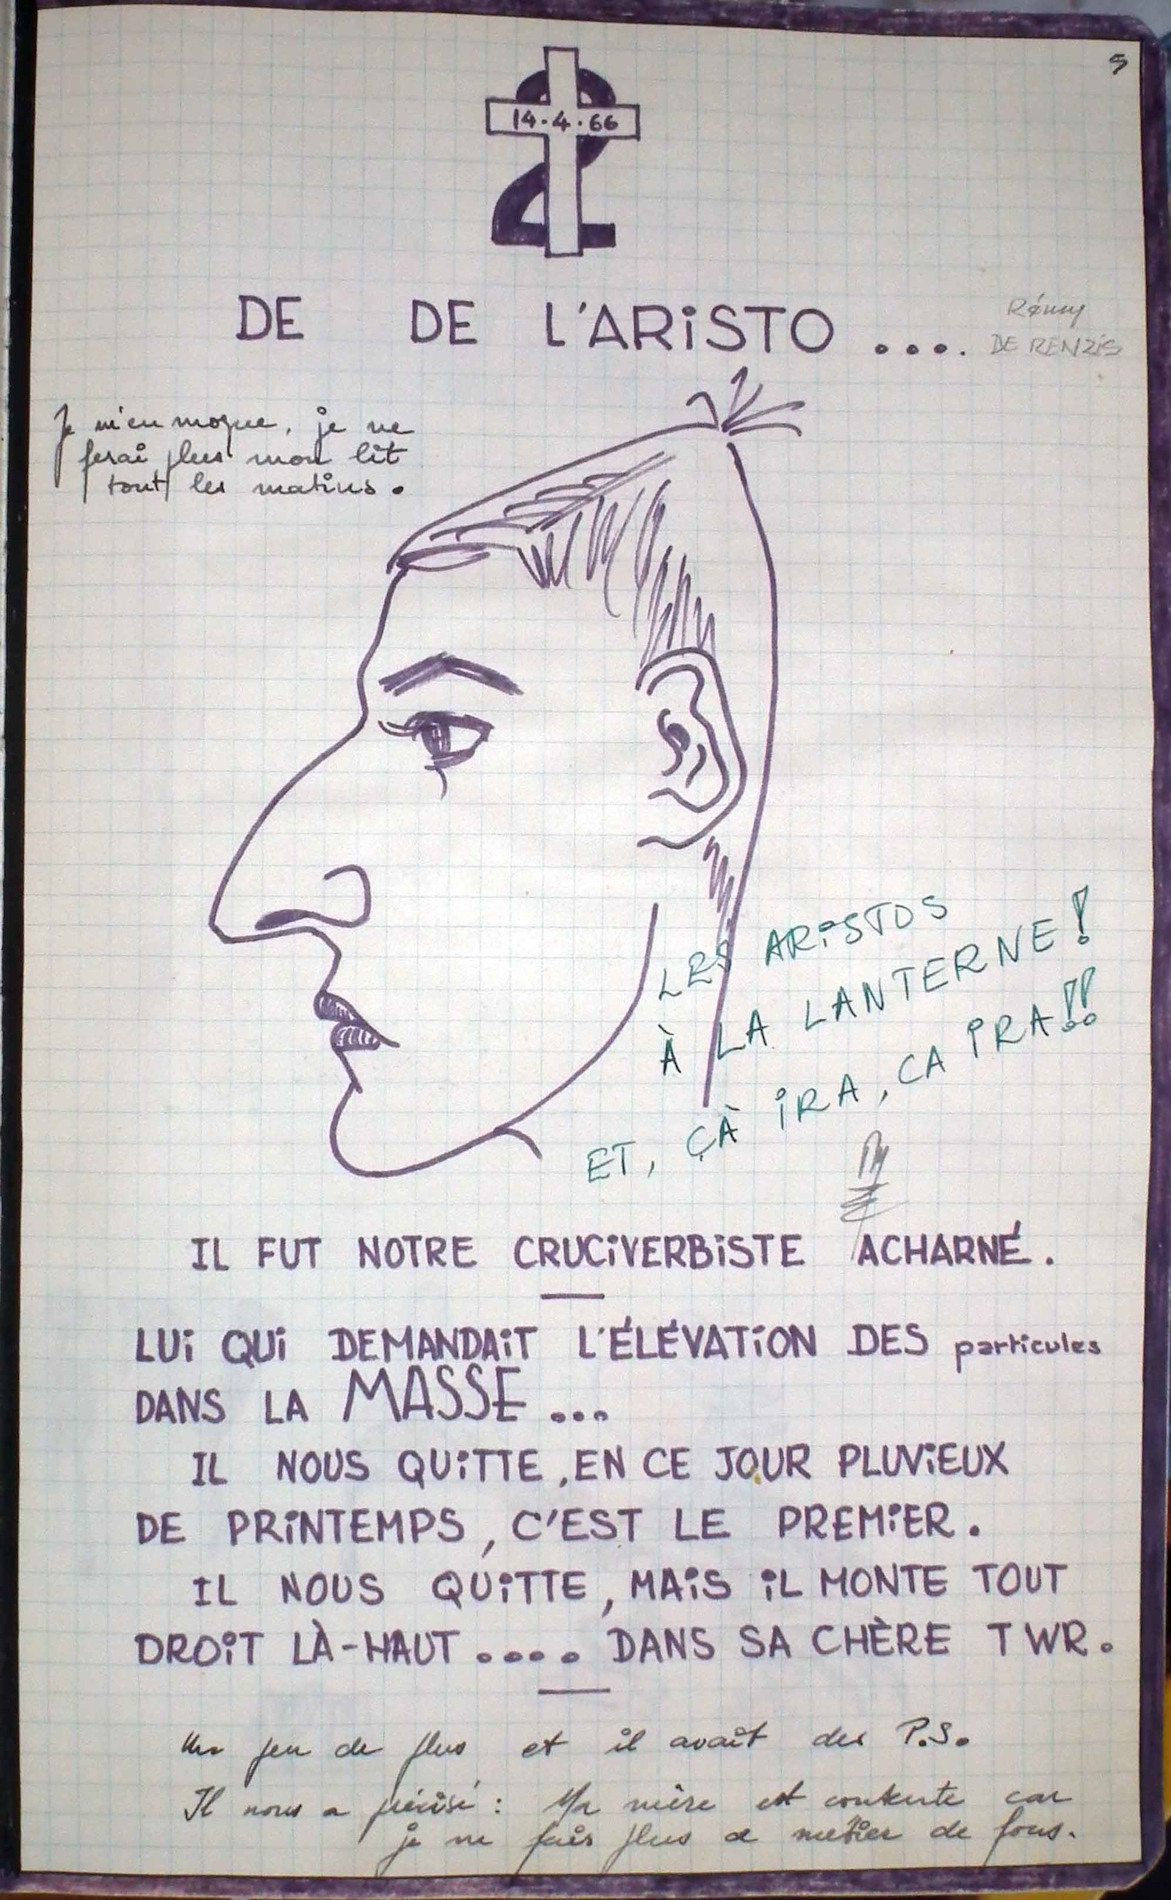 5
14.4.66
2
DE DE L'ARISTO ....
Rémy
DE RENZIS
Je m'en moque, je ne
ferai plus mon lit
tout les matins.
LES ARISTOS
À LA LANTERNE!
ET, ÇÀ IRA, CA IRA!!
IL FUT NOTRE CRUCIVERBISTE ACHARNÉ.
LUI QUI DEMANDAIT L'ÉLÉVATION DES particules
DANS LA MASSE ...
IL NOUS QUITTE, EN CE JOUR PLUVIEUX
DE PRINTEMPS, C'EST LE PREMIER.
IL NOUS QUITTE, MAIS IL MONTE TOUT
DROIT LÀ-HAUT .... DANS SA CHÈRE TWR.
Un peu de plus et il avait des P.S.
Il nous a précisé : Ma mère est contente car
je ne fais plus ce métier de fous.